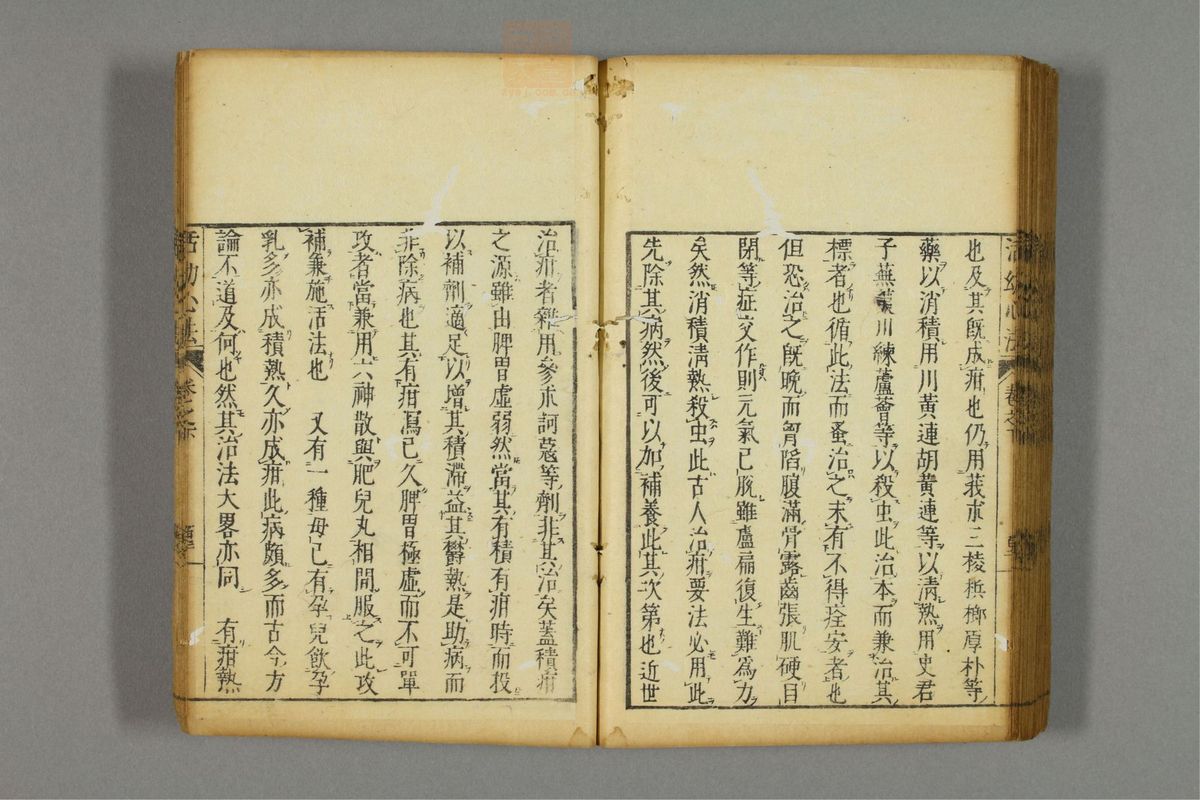 也及其既成疳也仍用莪朮三棱梹榔厚朴等
藥以消積用川黃連胡黃連等以清熱用史君
子蕪荑川練蘆薈等以殺虫此治本而兼治其
標者也循此法而蚤治之未有不得痊安者也
但恐治之既晚而胷陷腹滿骨露齒張肌硬目
閉等症交作則元氣已脫雖盧扁復生難爲力
矣然消積清熱殺虫此古人治疳要法必用此
先除其病然後可以加補養此其次第也近世
治疳者雜用參朮訶蔻等劑非其治矣蓋積疳
之源雖由脾胃虛弱然當其有積有疳時而投
以補劑適足以增其積滯益其鬱熱是助病而
非除病也其有疳瀉已久脾胃極虛而不可單
攻者當兼用六神散與肥兒丸相間服之此攻
補兼施活法也　又有一種母已有孕兒飲孕
乳多亦成積熱久亦成疳此病頗多而古今方
論不道及何也然其治法大畧亦同　有疳熱
活幼心法
卷之